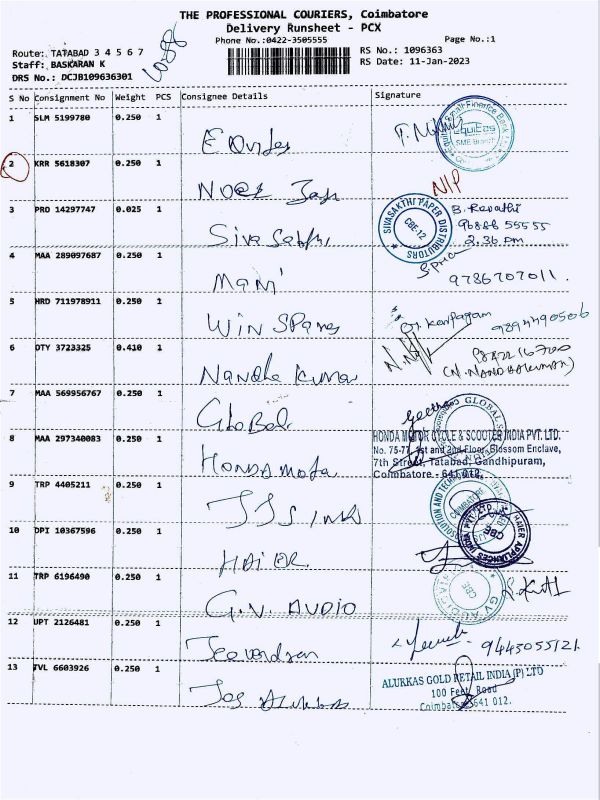 THE PROFESSIONAL COURIERS, Coimbatore
Delivery Runsheet - PCX
Phone No.:0422-3505555 Page No.:1
Route: TATABAD 3 4 5 6 7
Staff: BASKARAN K
DRS No.: DCJB109636301
RS No.: 1096363
RS Date: 11-Jan-2023
S No Consignment No Weight PCS Consignee Details Signature
1 SLM 5199780 0.250 1
SME Branch
2 KRR 5618307 0.250 1
NIP
3 PRO 14297747 0.025 1 Siva Sakthi
SIVASAKTHI PAPER DISTRIBUTORS
CBE-12
B. Revathi
96888 55555
2.36 pm
4 MAA 289097687 0.250 1 Mani
9786707011.
5 HRD 711978911 0.250 1 Win Spares
Karpagam
9894490506
6 DTY 3723325 0.410 1 Nandha Kumar
(N. NANDHAKUMAR)
7 MAA 569956767 0.250 1 Global
Geetha
GLOBAL
8 MAA 297340083 0.250 1 Honda Mota
HONDA MOTOR CYCLE & SCOOTER INDIA PVT. LTD.
No. 75-77, 1st and 2nd Floor, Blossom Enclave,
7th Street, Tatabad, Gandhipuram,
Coimbatore - 641 012.
9 TRP 4405211 0.250 1
COIMBATORE
10 DPT 10367596 0.250 1 HAIER
HAIER APPLIANCES INDIA PVT. LTD
CBE
11 TRP 6196490 0.250 1 G.V. AUDIO
CBE
12 UPT 2126481 0.250 1 Jeevandran
9445055121
13 TVL 6603926 0.250 1 Jos Alukkas
ALUKKAS GOLD RETAIL INDIA (P) LTD
100 Feet Road
Coimbatore 641 012.